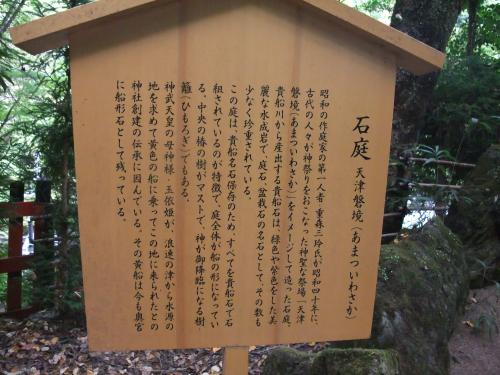 石庭 天津磐境(あまついわさか)
昭和の作庭家の第一人者 重森三玲氏が昭和四十年に、
古代の人々が神祭りをおこなった神聖な祭場「天津
磐境(あまついわさか)」をイメージして造った石庭。
貴船川から産出する貴船石は、緑色や紫色をした美
麗な水成岩で、庭石、盆栽石の名石として、その数も
少なく珍重されている。
この庭は、貴船名石保存のため、すべてを貴船石で石
組されているのが特徴で、庭全体が船の形になってい
る。中央の椿の樹がマストで、神が御降臨になる樹
籬(ひもろぎ)でもある。
神武天皇の母神様・玉依姫が、浪速の津から水源の
地を求めて黄色の船に乗ってこの地に来られたとの
神社創建の伝承に因んでいる。その黄船は今も奥宮
に船形石として残っている。